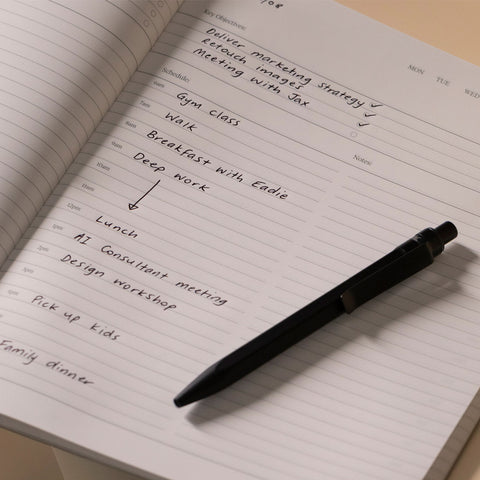 Key Objectives:
MON TUE WED
Deliver marketing strategy ✓
Retouch images ✓
Meeting with Jax ✓
Schedule:
Notes:
6am
Gym class
7am
Walk
8am
Breakfast with Eadie
9am
Deep work
10am
11am
12pm
Lunch
1pm
AI Consultant meeting
2pm
Design workshop
3pm
Pick up kids
Family dinner